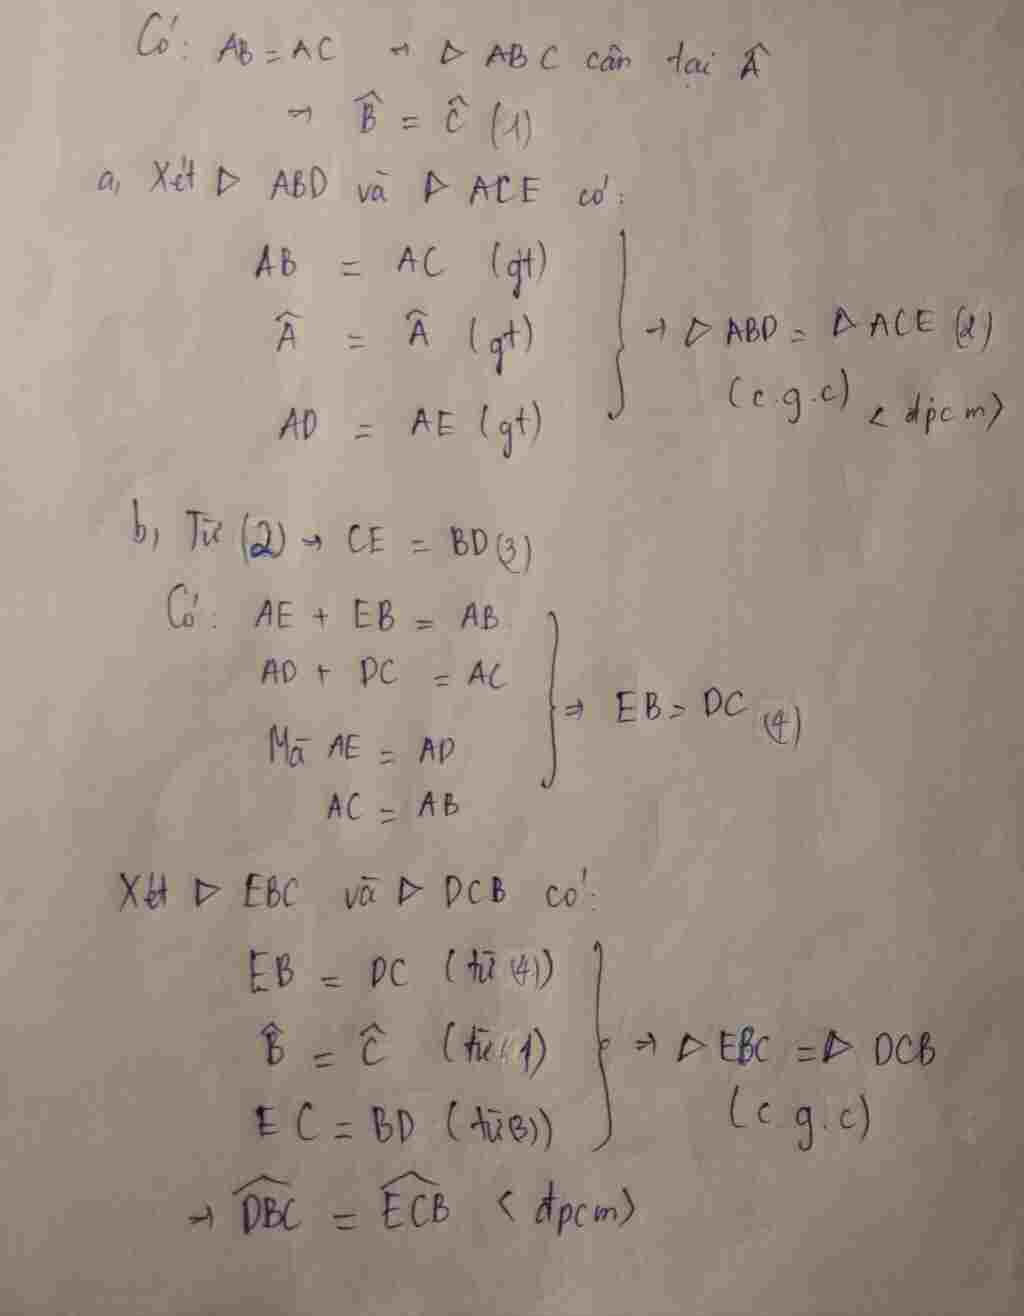 Có: AB = AC → △ ABC cân tại Â
→ B̂ = Ĉ (1)
a, Xét △ ABD và △ ACE có:
AB = AC (gt)
Â = Â (gt)
AD = AE (gt)
→ △ ABD = △ ACE (2)
(c.g.c) <đpcm>
b, Từ (2) → CE = BD (3)
Có: AE + EB = AB
AD + DC = AC
Mà AE = AD
AC = AB
⇒ EB = DC (4)
Xét △ EBC và △ DCB có:
EB = DC (từ (4))
B̂ = Ĉ (từ (1)
EC = BD (từ (3))
→ △ EBC = △ DCB
(c g.c)
→ \widehat{DBC} = \widehat{ECB} <đpcm>